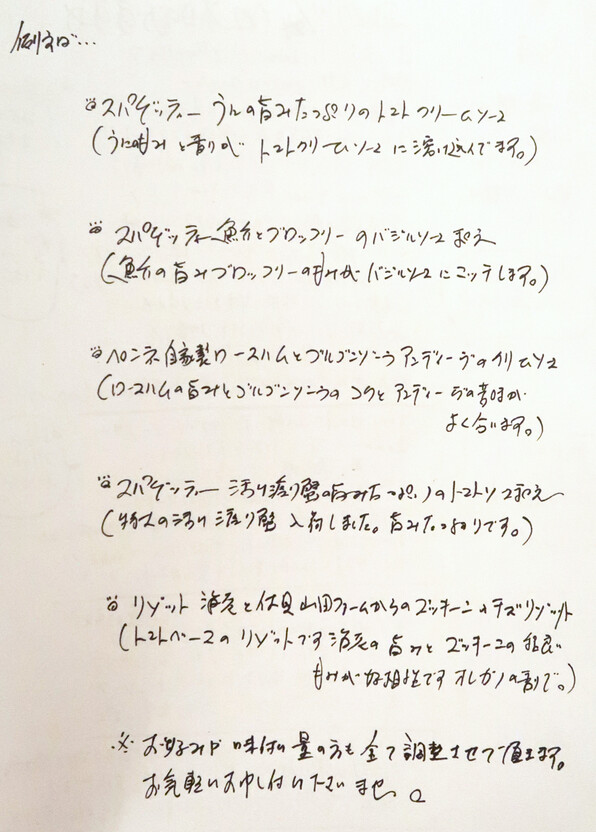 例えば…
スパゲッティー うにの旨みたっぷりのトマトクリームソース
(うにの甘みと香りが トマトクリームソースに溶け込んでます。)
スパゲッティー魚介とブロッコリーのバジルソース和え
(魚介の旨みブロッコリーの甘みがバジルソースにマッチします。)
ペンネ自家製ロースハムとゴルゴンゾーラアンディーブのクリームソース
(ロースハムの旨みとゴルゴンゾーラのコクとアンディーブの苦味が
よく合います。)
スパゲッティー 活け渡り蟹の旨みたっぷりのトマトソース和え
(特大の活け渡り蟹 入荷しました。旨みたっぷりです。)
リゾット 海老と伏見山田ファームからのズッキーニ チーズリゾット
(トマトベースのリゾットです 海老の旨みとズッキーニの
甘みが好相性です オレガノの香りで。)
※ お好みや 味付け 量の方も全て調整させて頂きます。
お気軽にお申し付け下さいませ。